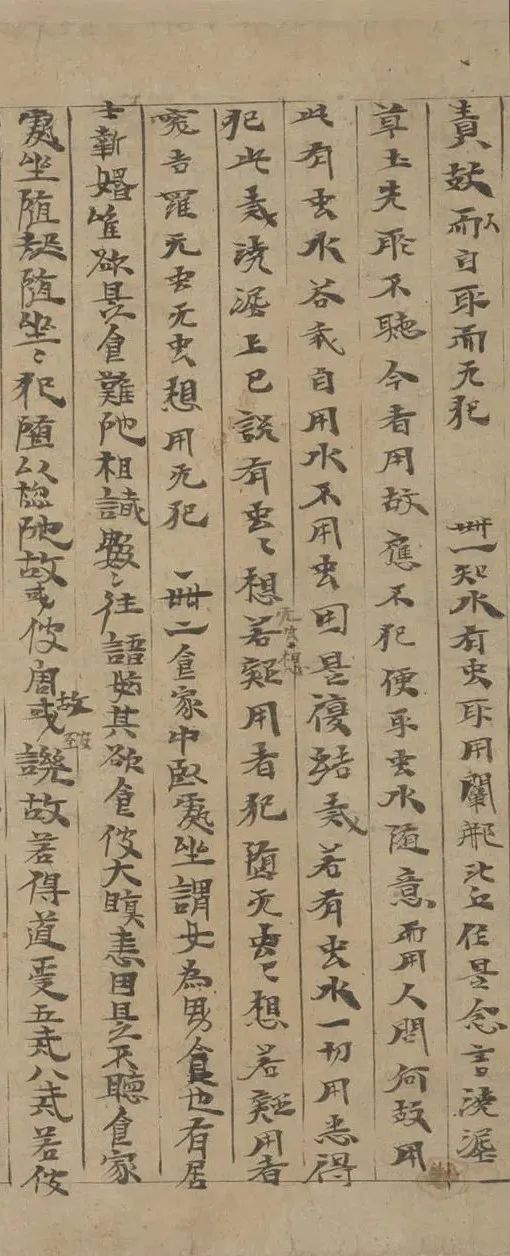 責故而自取而无犯 卌一知水有虫取用闡那比丘任是念言澆渥
草土先取不聽今者用故應不犯便取虫水随意而用人問何故用
此有虫水答我自用水不用虫因是復結戒若有虫水一切用悉得
犯此戒澆渥上已説有虫〻想若疑用者犯堕无虫〻想若疑用者
突吉羅无虫无虫想用无犯 卌二食家中臥處坐謂女為男食也有居
士新婚唯欲具食難陁相識數〻往語女其欲食彼大瞋恚因是不聽食家
處坐堕起堕坐〻犯堕以 陁故或彼 或 故若得道受五戒八戒若彼